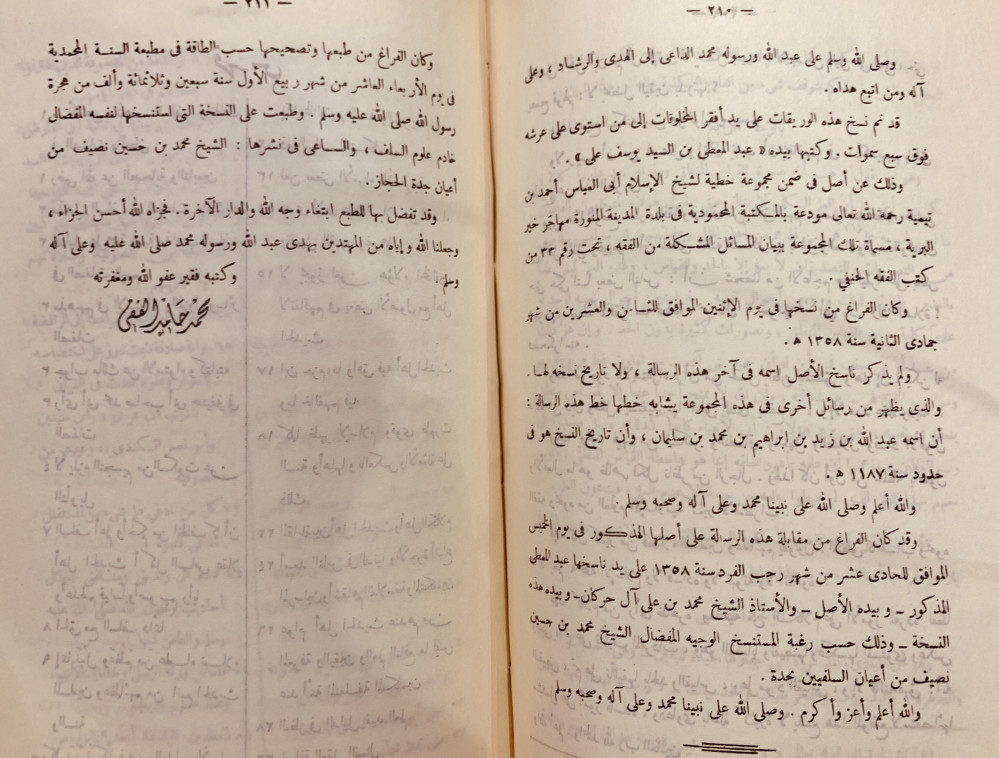 — ٢١٠ —
وصلى الله وسلم على عبد الله ورسوله محمد الداعى إلى الهدى والرشاد ، وعلى
آله ومن اتبع هداه .
قد تم نسخ هذه الوريقات على يد أفقر المخلوقات إلى من استوى على عرشه
فوق سبع سموات . وكتبها بيده « عبد المعطى بن السيد يوسف على » .
وذلك عن أصل فى ضمن مجموعة خطية لشيخ الإسلام أبى العباس أحمد بن
تيمية رحمه الله تعالى مودعة بالمكتبة المحمودية فى بلدة المدينة المنورة مهاجَر خير
البرية ، مسماة تلك المجموعة ببيان المسائل المشكلة من الفقه ، تحت رقم ٣٣ من
كتب الفقه الحنفي .
وكان الفراغ من نسخها فى يوم الإثنين الموافق للثامن والعشرين من شهر
جمادى الثانية سنة ١٣٥٨ ه .
ولم يذكر ناسخ الأصل اسمه فى آخر هذه الرسالة ، ولا تاريخ نسخه لها .
والذى يظهر من رسائل أخرى فى هذه المجموعة يشابه خطها خط هذه الرسالة :
أن اسمه عبد الله بن زيد بن إبراهيم بن محمد بن سليمان ، وأن تاريخ النسخ هو فى
حدود سنة ١١٨٧ ه .
والله أعلم وصلى الله على نبينا محمد وعلى آله وصحبه وسلم .
وقد كان الفراغ من مقابلة هذه الرسالة على أصلها المذكور فى يوم الخميس
الموافق للحادى عشر من شهر رجب الفرد سنة ١٣٥٨ على يد ناسخها عبد المعطى
المذكور – وبيده الأصل – والأستاذ الشيخ محمد بن على آل حركان – وبيده هذه
النسخة – وذلك حسب رغبة المستنسخ الوجيه المفضال الشيخ محمد بن حسين
نصيف من أعيان السلفيين بجدة .
والله أعلم وأعز وأكرم . وصلى الله على نبينا محمد وعلى آله وصحبه وسلم
— ٢١١ —
وكان الفراغ من طبعها وتصحيحها حسب الطاقة فى مطبعة السنة المحمدية
فى يوم الأربعاء العاشر من شهر ربيع الأول سنة سبعين وثلاثمائة وألف من هجرة
رسول الله صلى الله عليه وسلم . وطبعت على النسخة التى استنسخها لنفسه المفضال
خادم علوم السلف ، والساعى فى نشرها : الشيخ محمد بن حسين نصيف من
أعيان جدة الحجاز .
وقد تفضل بها للطبع ابتغاء وجه الله والدار الآخرة . فجزاه الله أحسن الجزاء ،
وجعلنا الله وإياه من المهتدين بهدى عبد الله ورسوله محمد صلى الله عليه وعلى آله
وسلم .
وكتبه فقير عفو الله ومغفرته
محمد حامد الفقي